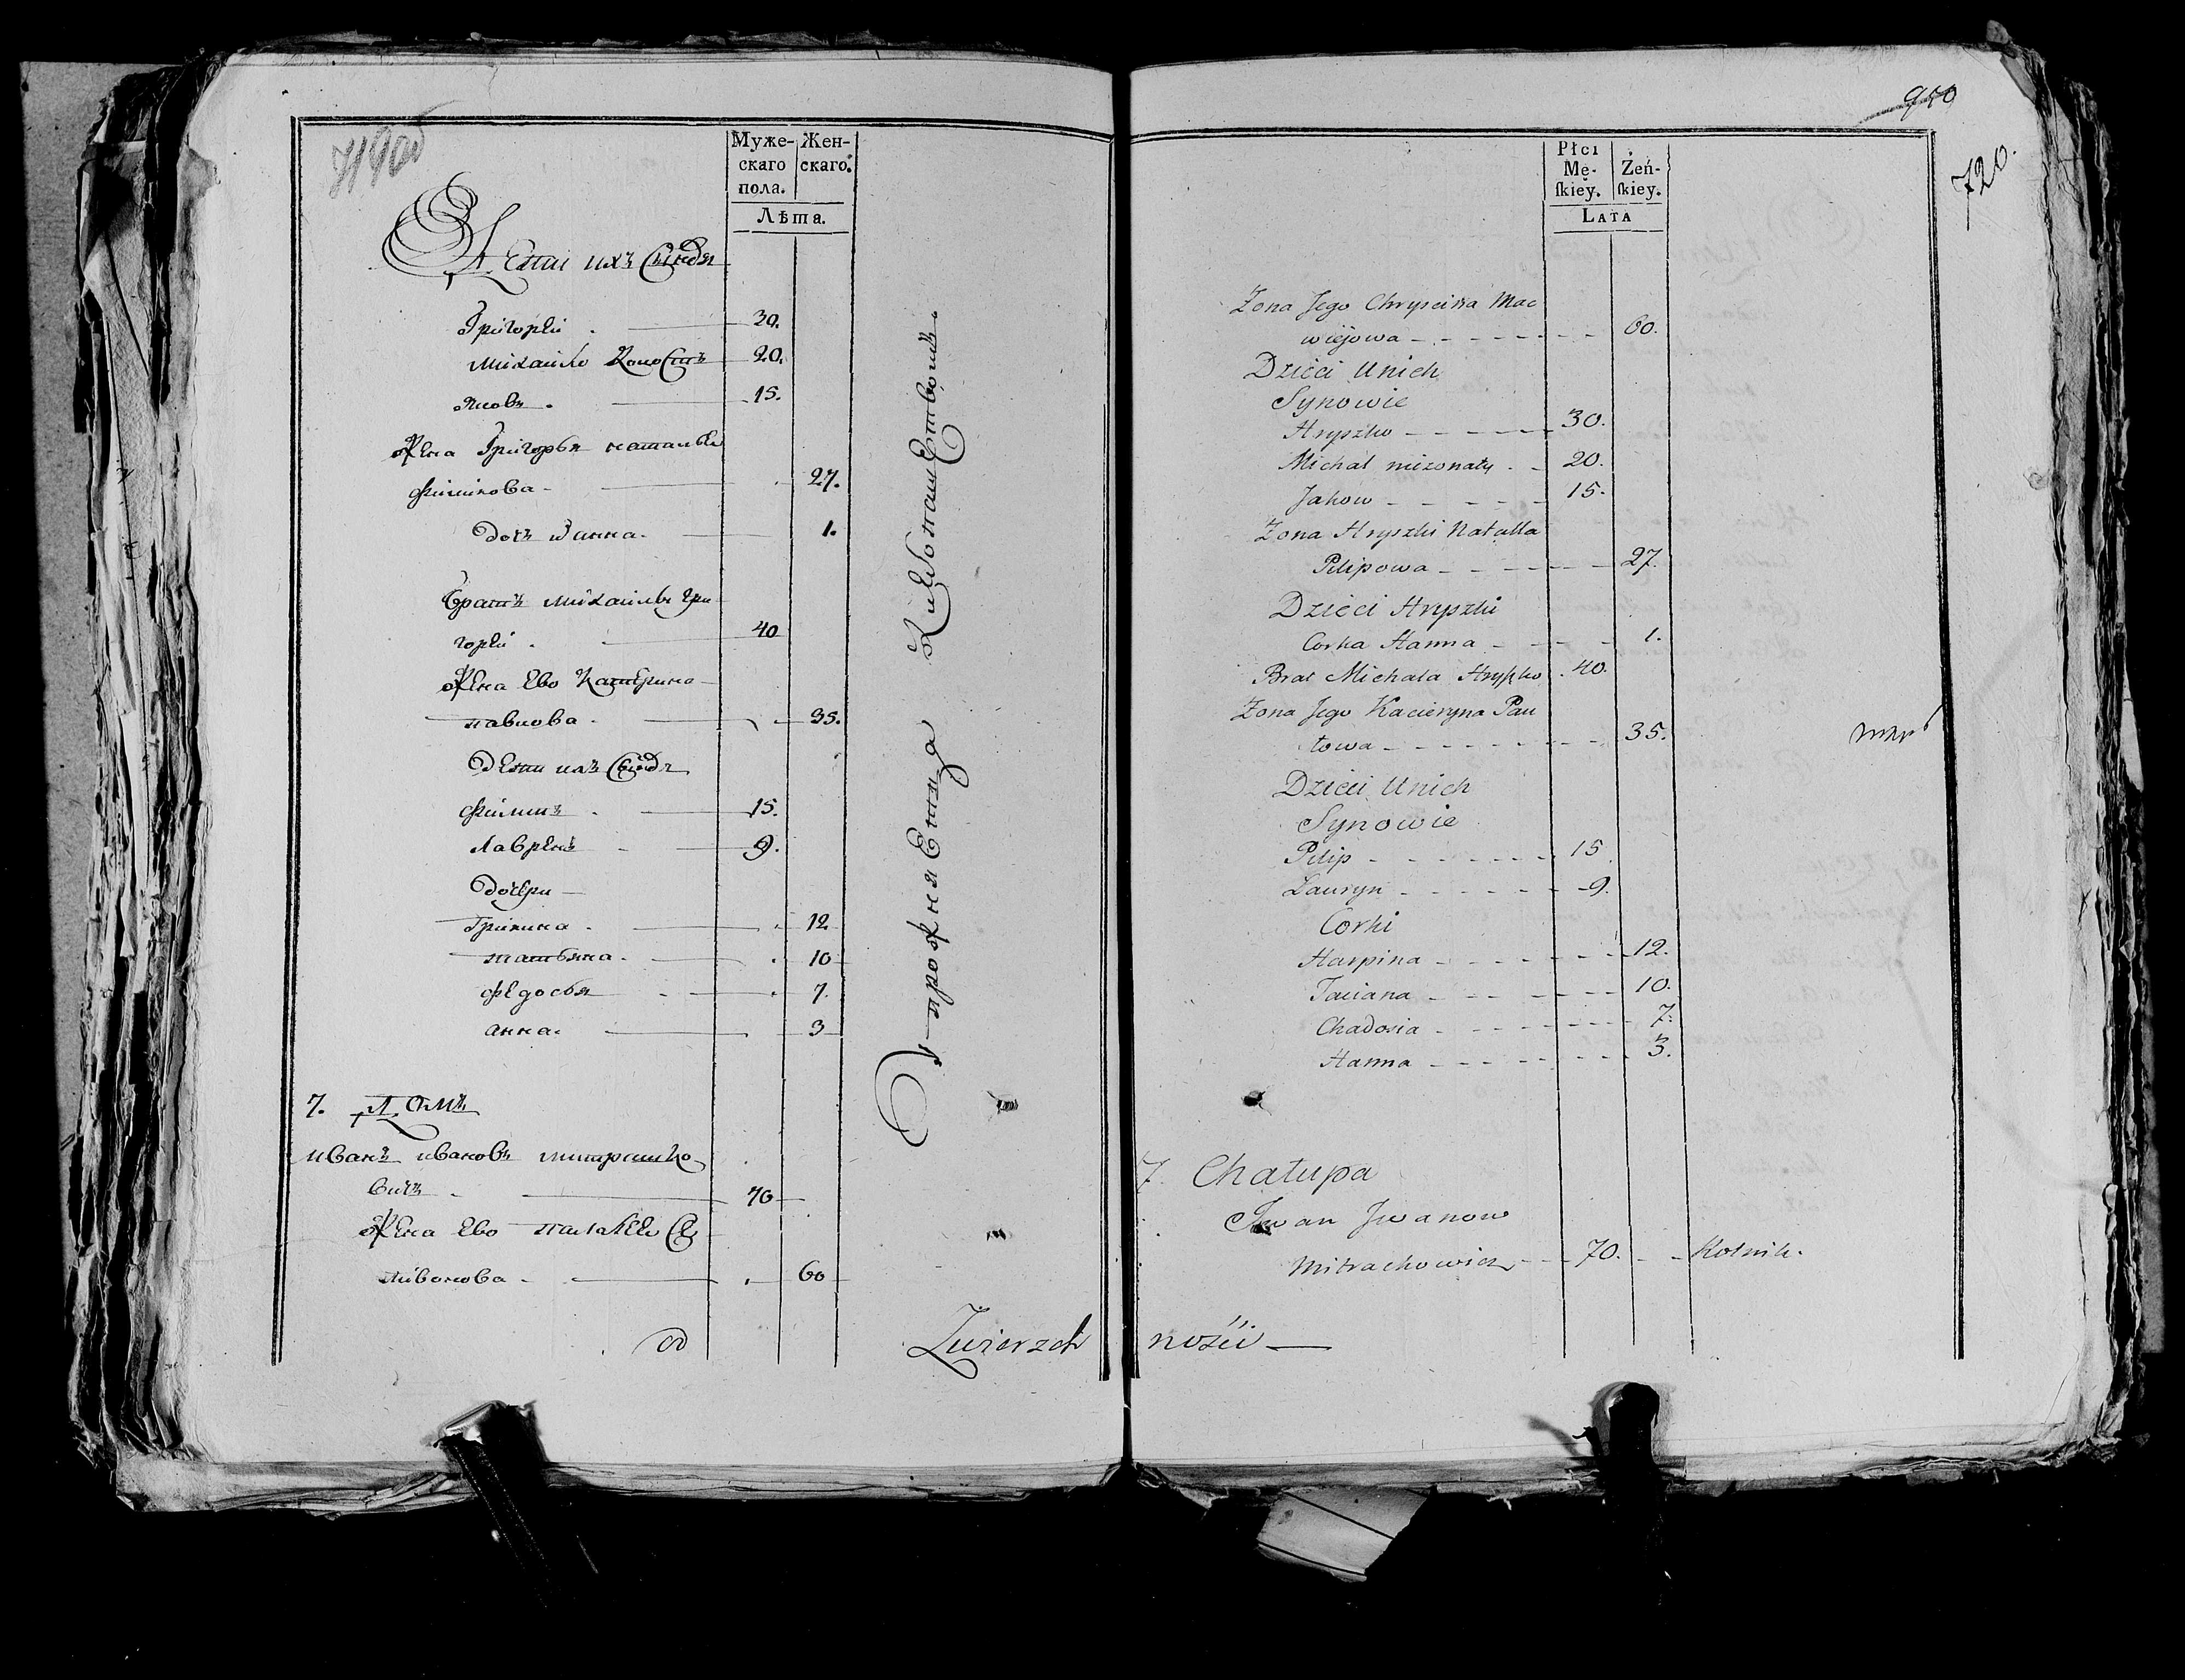 719об
Муже-
скаго
пола.
Жен-
скаго.
Лѣта.
Дети ихъ Сыновья
Григорей 30.
Михайло холостъ 20.
Яковъ 15.
Жена Григорья наталья
Филипова 27.
Дочь анна. 1.
Братъ михайлы Гри
горей 40
Жена Ево Катерина
павлова 35.
Дети ихъ Сыновья
Филипъ 15.
Лаврены 9.
Дочери
Грипина 12
татьяна 10
федосья 7.
анна. 3
7. Домъ
иванъ ивановъ митрашко
вичъ 70
Жена Ево палагея Се
ливонова 60
од
Zwierzch
950
720.
Płci
Mę-
skiey.
Żeń-
skiey.
Lata
Zona Jego Chryscina Mac
wiejowa 60.
Dzieci Unich
Synowie
Hryszko 30.
Michał niezonaty 20.
Jakow 15.
Zona Hryszki Natalla
Pilipowa 27.
Dzieci Hryszki
Corka Hanna 1.
Brat Michała Hryszko 40.
Zona Jego Kacieryna Pau
łowa 35.
Dzieci Unich
Synowie
Pilip 15
Lauryn 9.
Corki
Harpina 12.
Taciana 10.
Chadosia 7.
Hanna 3.
7. Chałupa
Iwan Jwanow
Mitrachowicz 70. Rolnik.
nośći